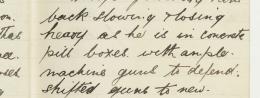 back slowing & losing
heavy as he is in concrete
pill boxes with ample
machine guns to defend.
shifted guns to new